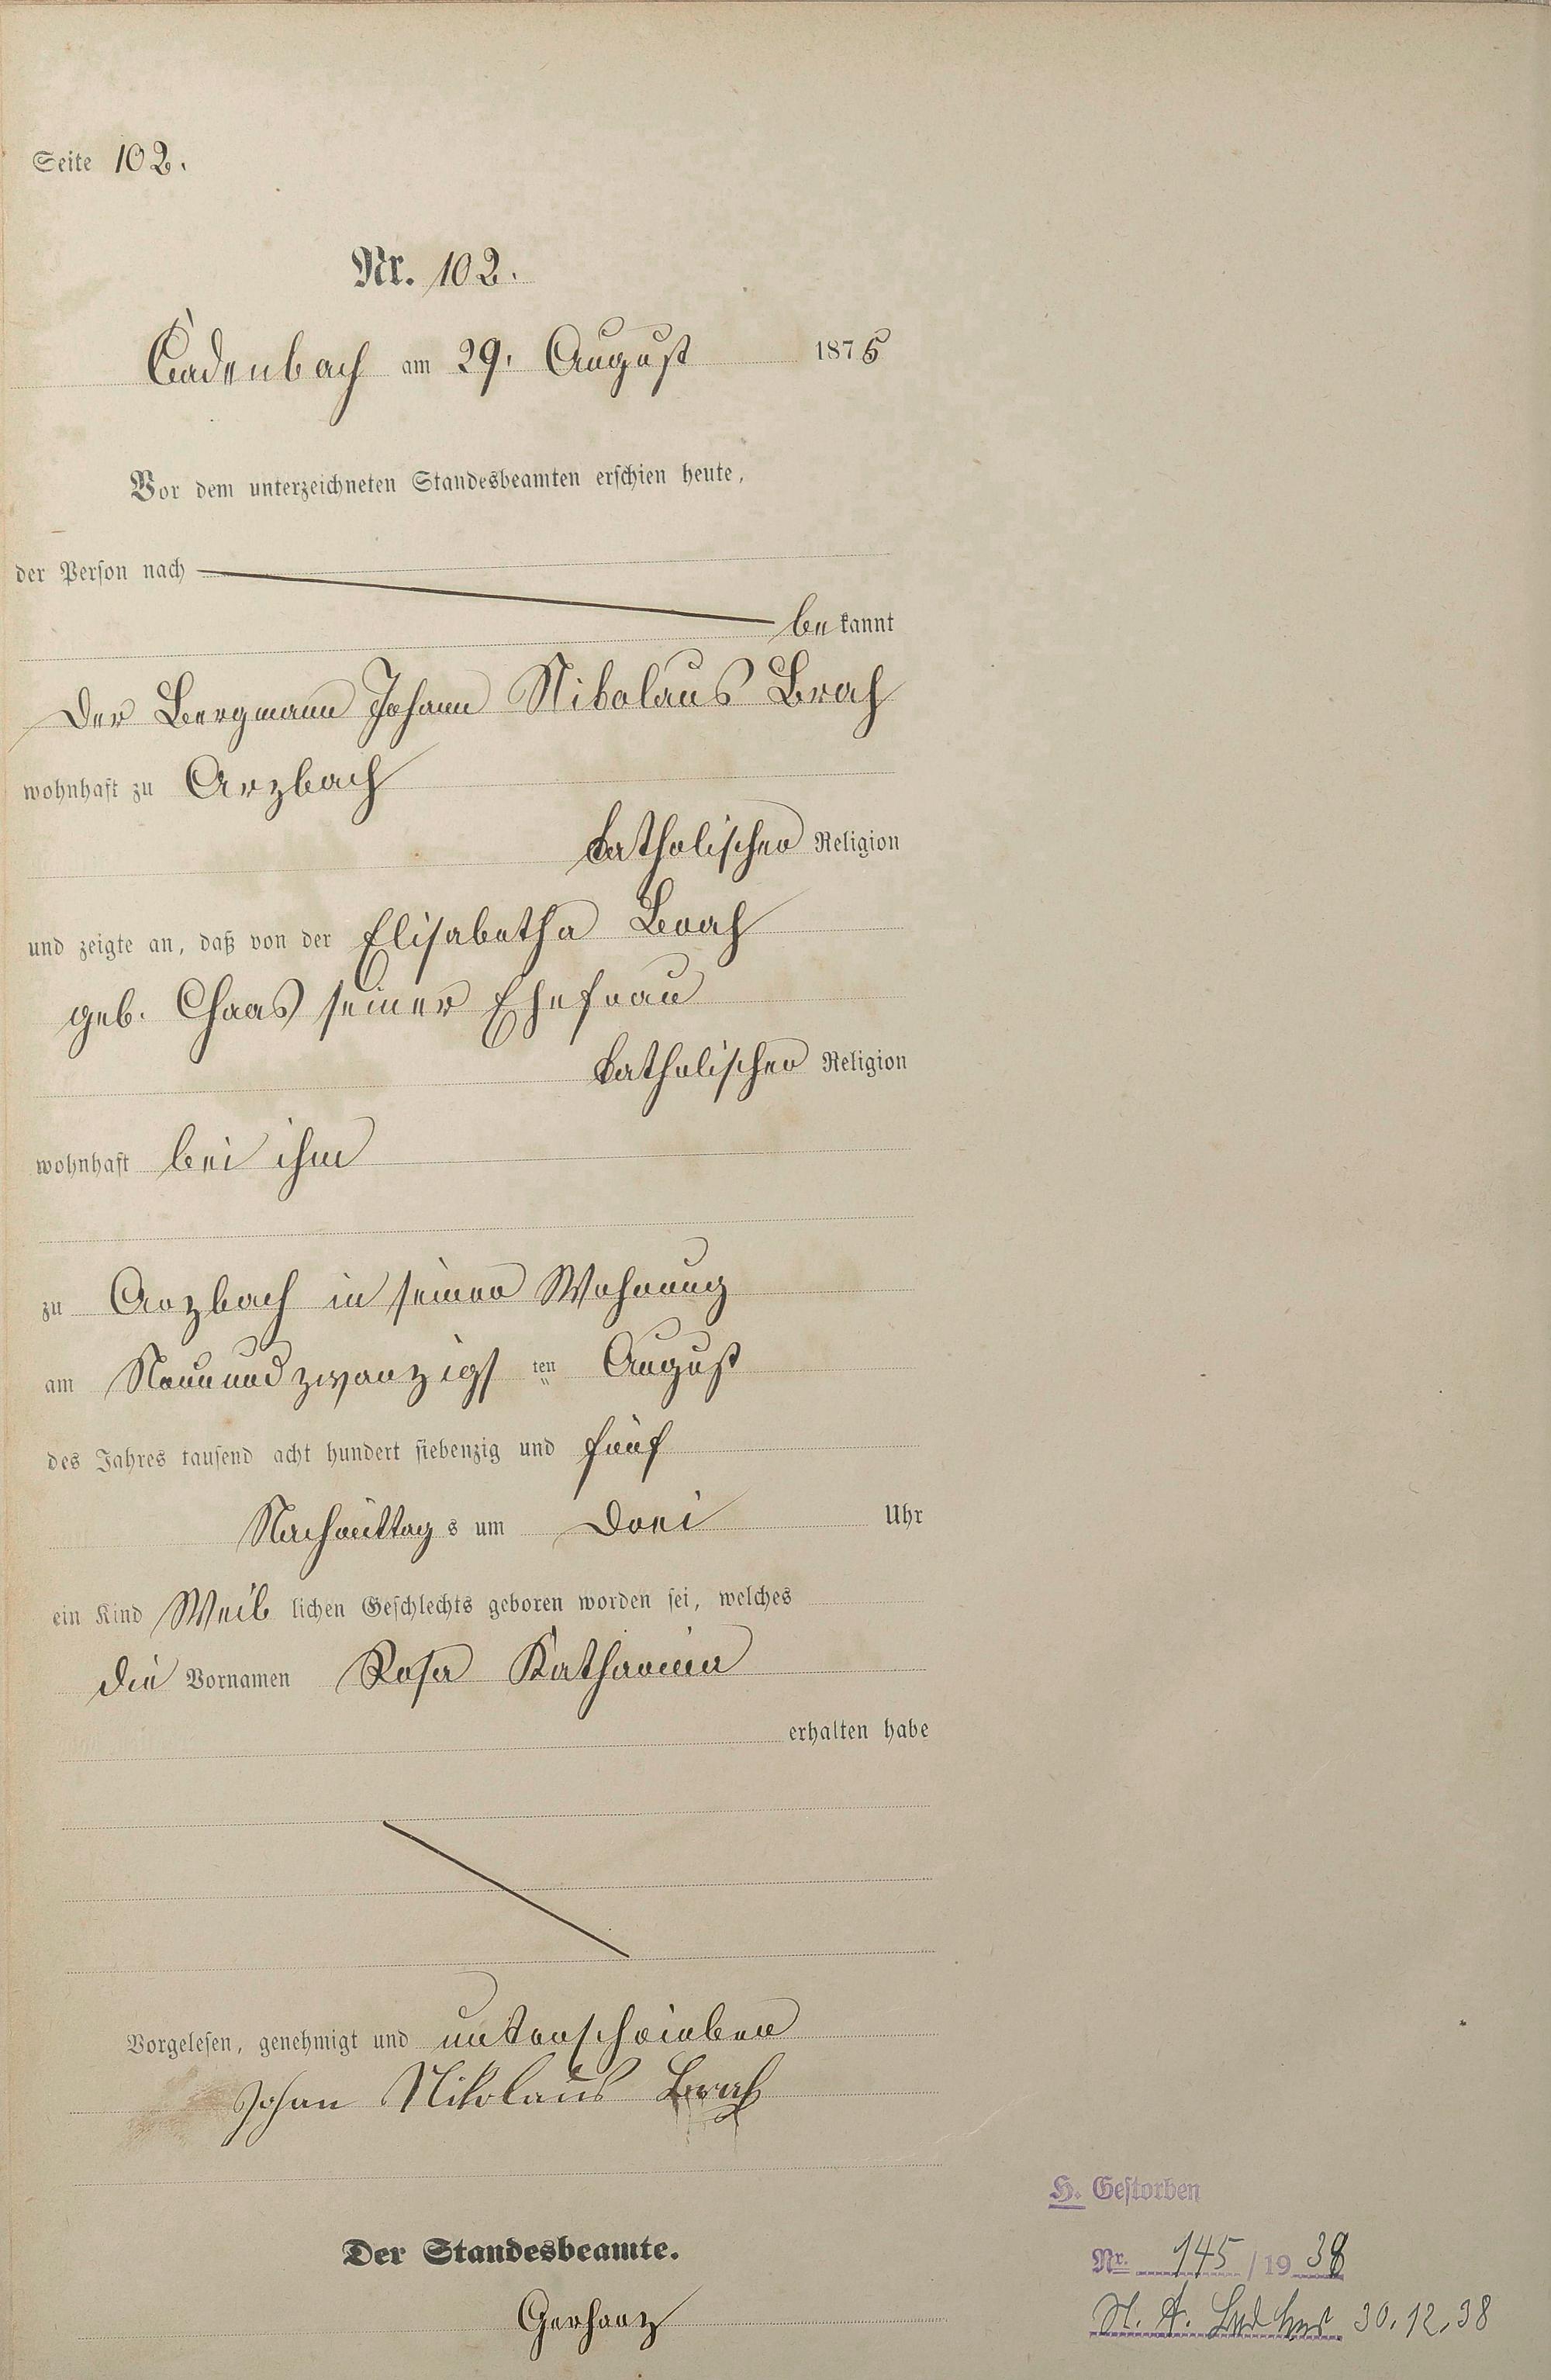 Seite 102.
Nr. 102.
Cadenbach am 29. August 1875
Vor dem unterzeichneten Standesbeamten erschien heute,
der Person nach
bekannt
Der Bergmann Johann Nikolaus Brach
wohnhaft zu Arzbach
katholischer Religion
und zeigte an, daß von der Elisabetha Brach
geb. Chaas seiner Ehefrau
katholischer Religion
wohnhaft bei ihm
zu Arzbach in seiner Wohnung
am Neunundzwanzigsten August
des Jahres tausend acht hundert siebenzig und fünf
Nachmittags um Drei Uhr
ein Kind Weiblichen Geschlechts geboren worden sei, welches
die Vornamen Rosa Katharina
erhalten habe
Vorgelesen, genehmigt und unterschrieben
Johan Nikolaus Brach
Der Standesbeamte.
Gerharz
H. Gestorben
Nr. 145 / 1938
St. A. 30.12.38